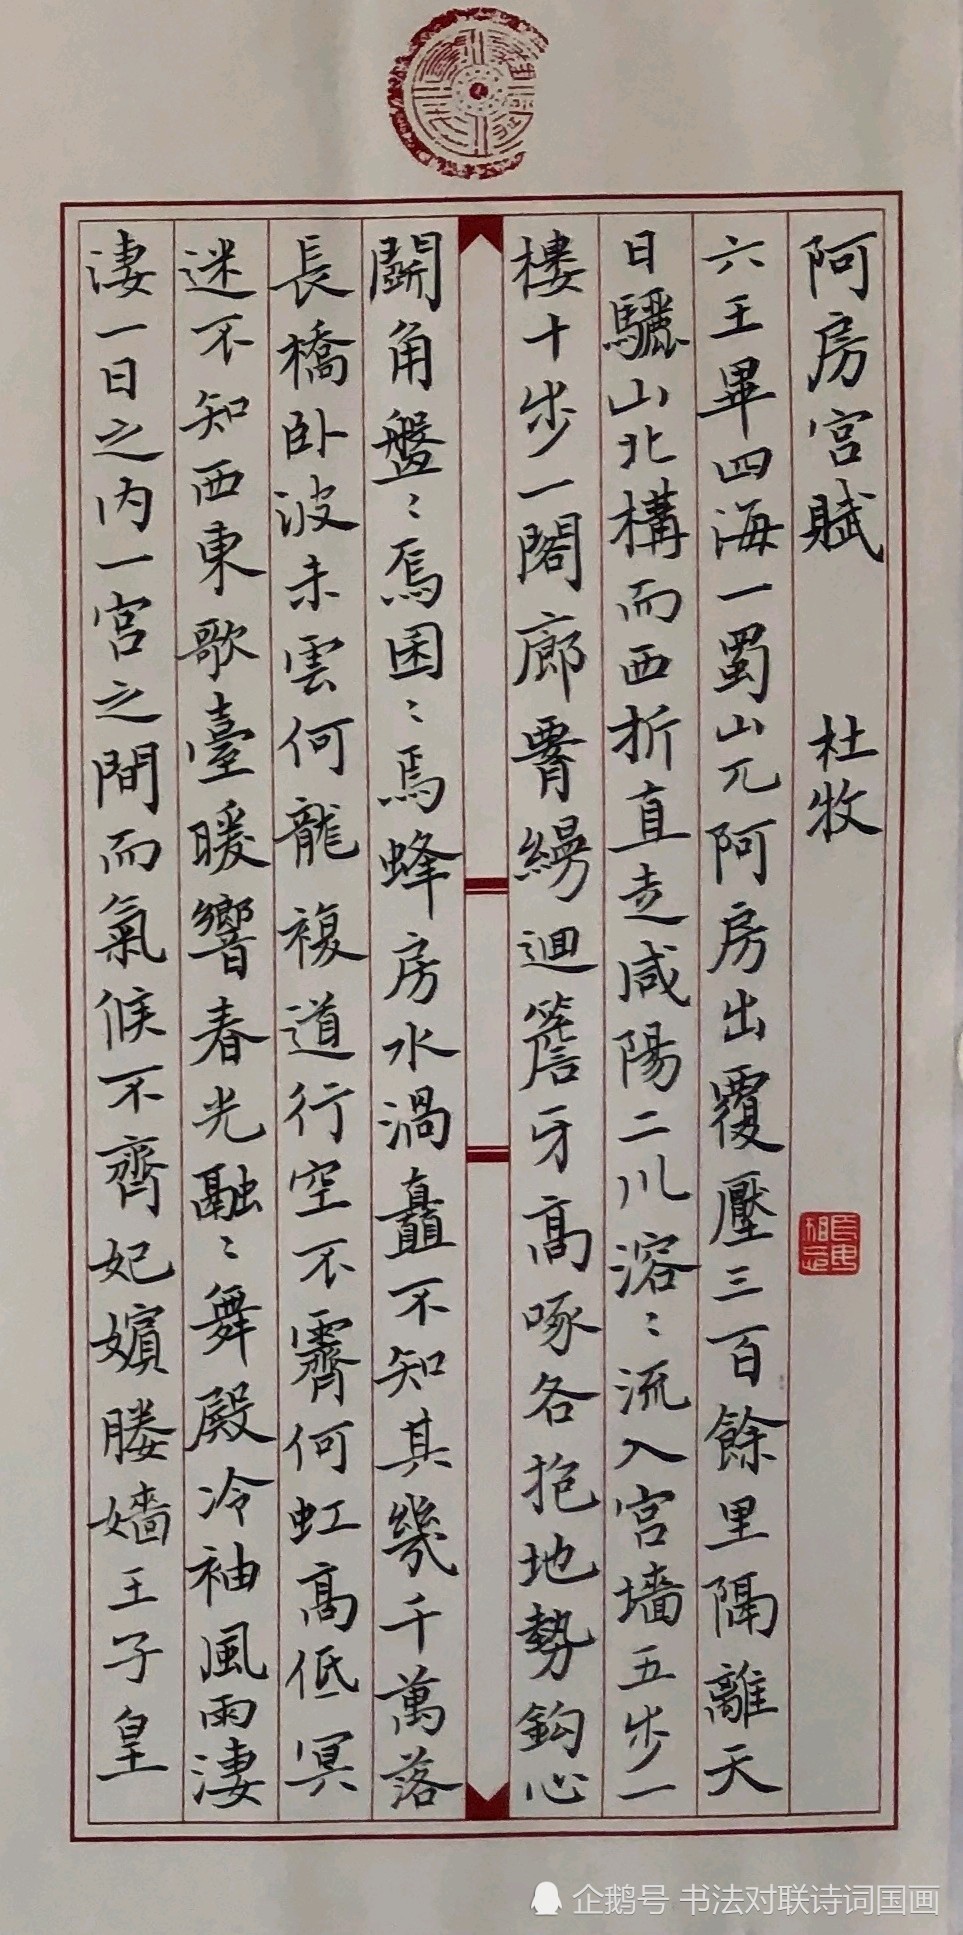 阿房宮賦 杜牧
六王畢四海一蜀山兀阿房出覆壓三百餘里隔離天
日驪山北構而西折直走咸陽二川溶〻流入宮墻五步一
樓十步一閣廊霄縵迴簷牙高啄各抱地勢鈎心
鬭角盤〻焉囷〻焉蜂房水渦矗不知其幾千萬落
長橋卧波未雲何龍複道行空不霽何虹高低冥
迷不知西東歌臺暖響春光融〻舞殿冷袖風雨淒
淒一日之內一宮之間而氣候不齊妃嬪媵嬙王子皇
企鹅号 书法对联诗词国画